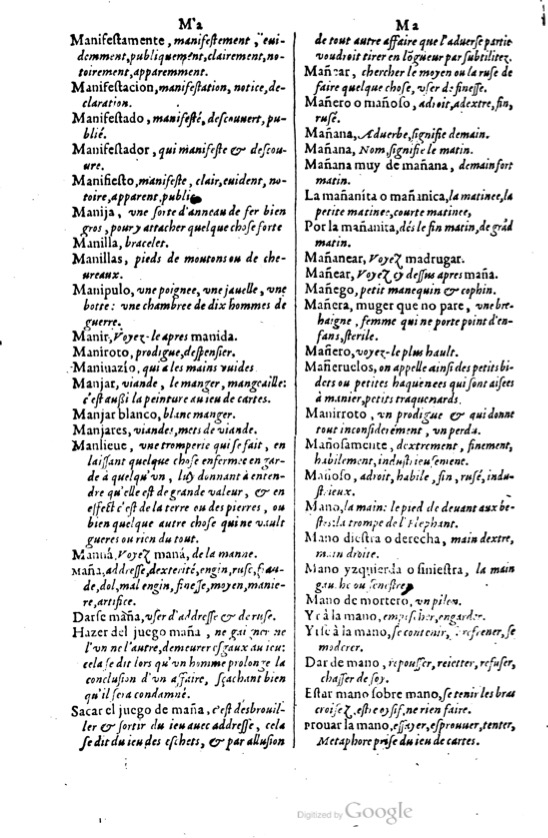 M'a
Manifestamente, manifestement, eui-
demment, publiquement, clairement, no-
toirement, apparemment.
Manifestacion, manifestation, notice, de-
claration.
Manifestado, manifesté, descouuert, pu-
blié.
Manifestador, qui manifeste & descou-
ure.
Manifiesto, manifeste, clair, euident, no-
toire, apparent, public
Manija, vne sorte d'anneau de fer bien
gros, pour y attacher quelque chose forte
Manilla, bracelet.
Manillas, pieds de moutons ou de che-
ureaux.
Manipulo, vne poignee, vne jauelle, vne
botte: vne chambre de dix hommes de
guerre.
Manir, Voyez-le apres manida.
Maniroto, prodigue, despensier.
Maniuazio, qui a les mains vuides.
Manjar, viande, le manger, mangeaille:
c'est aussi la peinture au ieu de cartes.
Manjar blanco, blanc manger.
Manjares, viandes, mets de viande.
Manlieue, vne tromperie qui se fait, en
laissant quelque chose enfermee en gar-
de à quelqu'vn, luy donnant à enten-
dre qu'elle est de grande valeur, & en
effect c'est de la terre ou des pierres, ou
bien quelque autre chose qui ne vault
gueres ou rien du tout.
Manná, Voyez maná, de la manne.
Maña, addresse, dexterité, engin, ruse, frau-
de, dol, mal engin, finesse, moyen, manie-
re, artifice.
Darse maña, vser d'addresse & de ruse.
Hazer del juego maña, ne gaigner ne
l'vn ne l'autre, demeurer esgaux au ieu:
cela se dit lors qu'vn homme prolonge la
conclusion d'vn affaire, sçachant bien
qu'il sera condamné.
Sacar el juego de maña, c'est desbrouil-
ler & sortir du ieu auec addresse, cela
se dit du ieu des eschets, & par allusion
Ma
de tout autre affaire que l'aduerse partie
voudroit tirer en lõgueur par subtilitez.
Mañear, chercher le moyen ou la ruse de
faire quelque chose, vser de finesse.
Mañero o mañoso, adroit, adextre, fin,
rusé.
Mañana, Aduerbe, signifie demain.
Mañana, Nom, signifie le matin.
Mañana muy de mañana, demain fort
matin.
La mañanita o mañanica, la matinee, la
petite matinee, courte matinee,
Por la mañanita, dés le fin matin, de grãd
matin.
Mañanear, Voyez madrugar.
Mañear, Voyez cy dessus apres maña.
Mañego, petit manequin & cophin.
Mañera, muger que no pare, vne bre-
haigne, femme qui ne porte point d'en-
fans, sterile.
Mañero, voyez-le plus hault.
Mañeruelos, on appelle ainsi des petits bi-
dets ou petites haquenees qui sont aisees
à manier, petits traquenards.
Manirroto, vn prodigue & qui donne
tout inconsiderément, vn perda.
Mañosamente, dextrement, finement,
habilement, industrieusement.
Mañoso, adroit, habile, fin, rusé, indu-
strieux.
Mano, la main: le pied de deuant aux be-
stes: la trompe de l'Elephant.
Mano diestra o derecha, main dextre,
main droite.
Mano yzquierda o siniestra, la main
gauche ou senestre
Mano de mortero, vn pilon.
Yr à la mano, empescher, engarder.
Yrse à la mano, se contenir, refrener, se
moderer.
Dar de mano, repousser, reietter, refuser,
chasser de soy.
Estar mano sobre mano, se tenir les bras
croisez, estre oysif, ne rien faire.
Prouar la mano, essayer, esprouuer, tenter,
Metaphore prise du ieu de cartes.
Digitized by Google